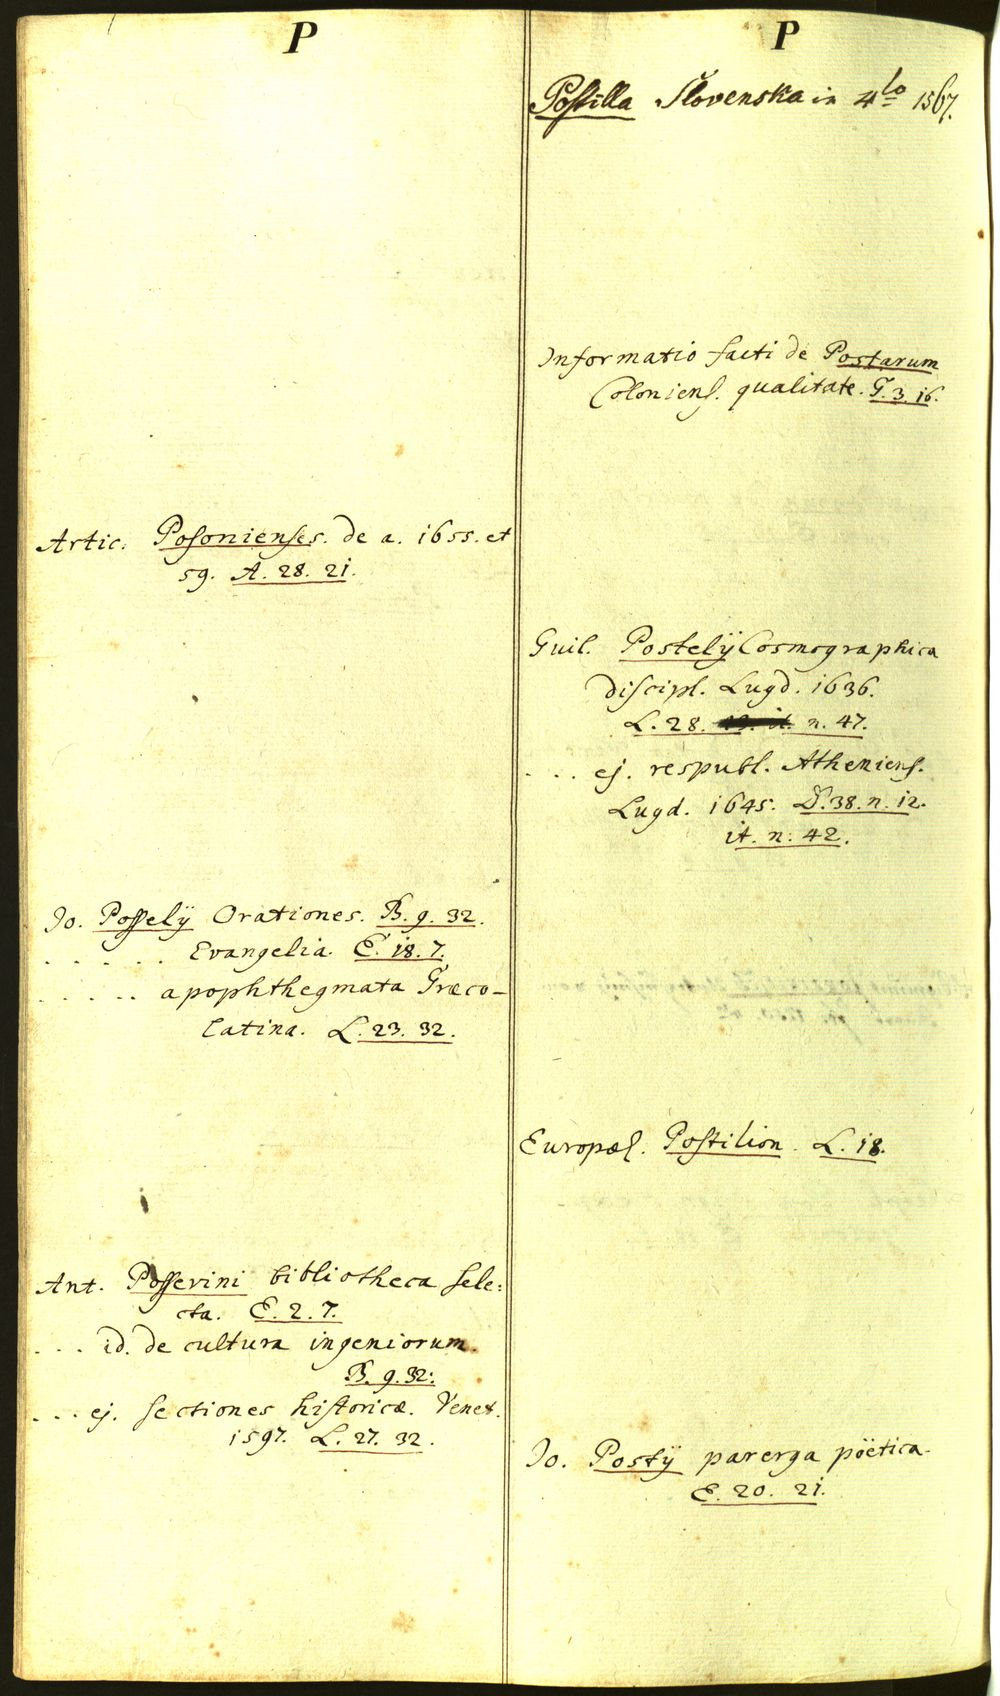 P
Artic. Posonienses. de a. 1655. et
59. A. 28. 21.
Jo. Posselÿ Orationes. B. 9. 32.
. . . . . Evangelia. E. 18. 7.
. . . . . apophthegmata Græco-
Latina. L. 23. 32.
Ant. Possevini bibliotheca sele:
cta. E. 2. 7.
. . . id. de cultura ingeniorum.
B. 9. 32:
. . . ej. sectiones historicæ. Venet.
1597. L. 27. 32.
P
Postilla Slovenska in 4to 1567.
Informatio facti de Postarum
Coloniens. qualitate. G. 3. 16.
Guil. Postelÿ Cosmographica
discipl. Lugd. 1636.
L. 28. n. 47.
. . . ej. respubl. Atheniens.
Lugd. 1645. D. 38. n. 12.
it. n. 42.
Europæs. Postilion. L. 18.
Jo. Postÿ parerga pöetica.
E. 20. 21.